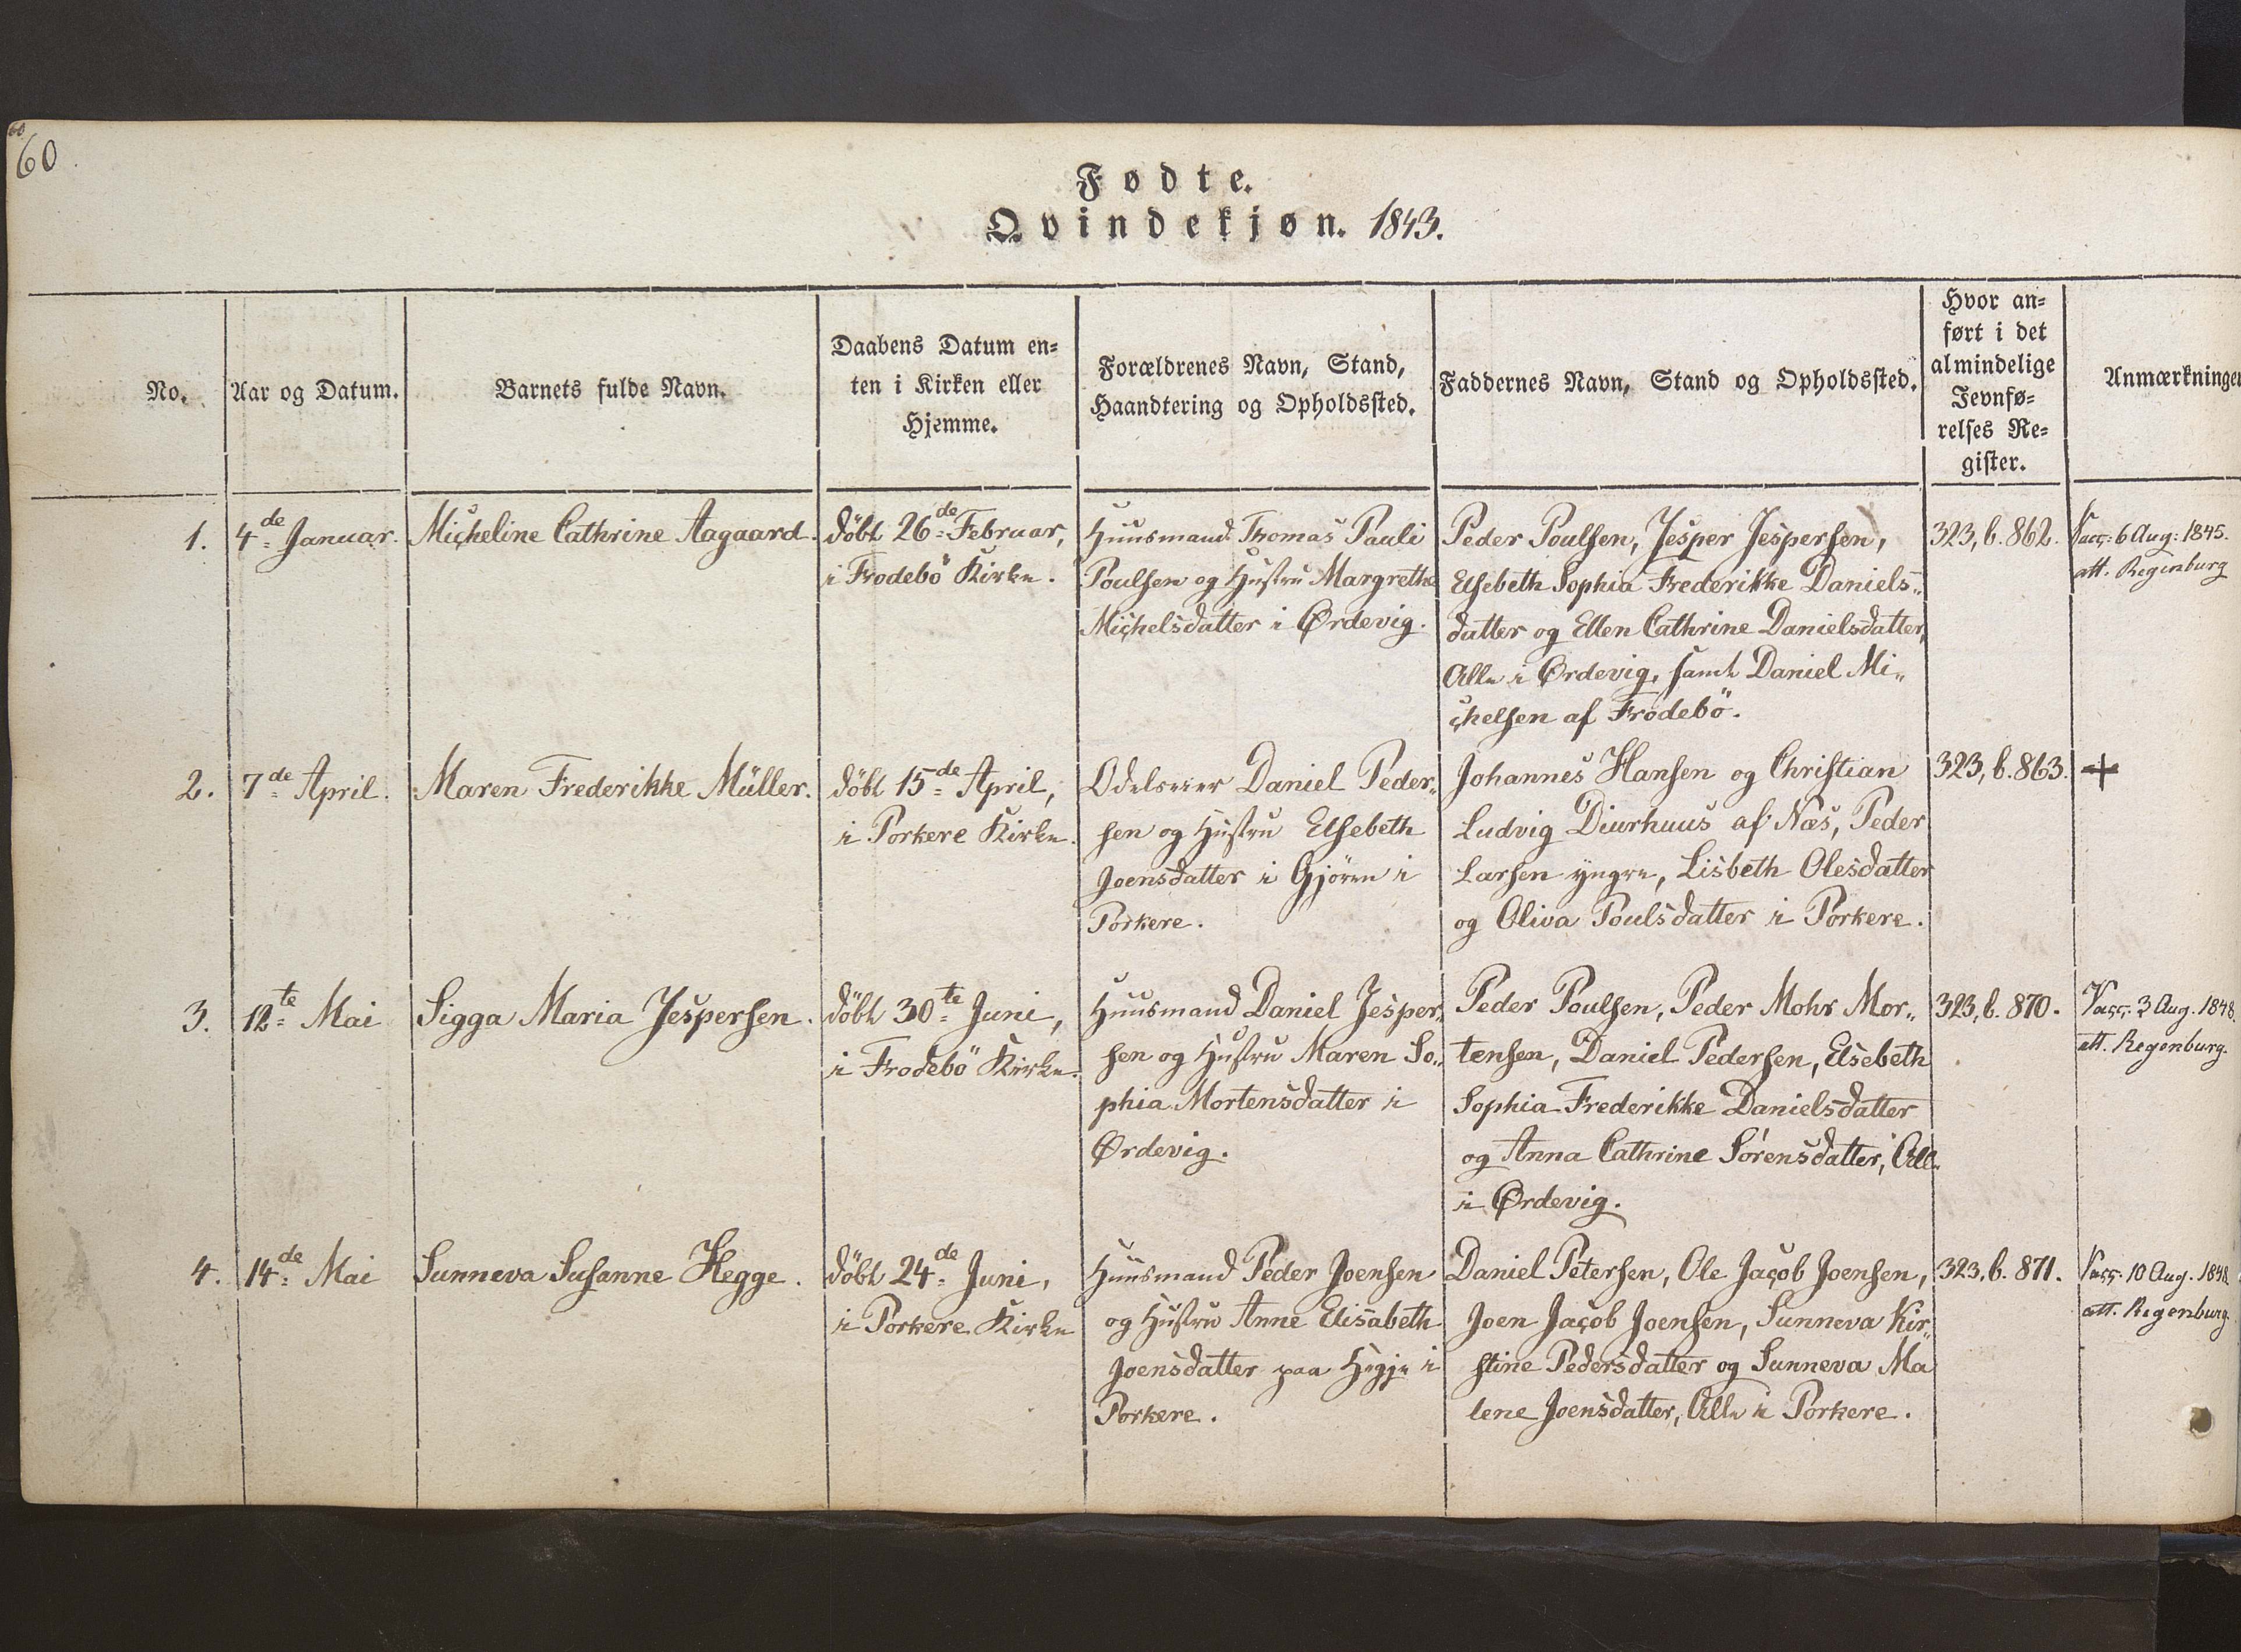 60
60.
Fødte.
Qvindekjøn. 1843.
No.
Aar og Datum.
Barnets fulde Navn.
Daabens Datum en=
ten i Kirken eller
Hjemme.
Forældrenes Navn, Stand,
Haandtering og Opholdssted.
Faddernes Navn, Stand og Opholdssted.
Hvor an=
ført i det
almindelige
Jevnfø=
relses Re=
gister.
Anmærkninger
1.
4de Januar.
Micheline Cathrine Aagaard.
döbt 26de Februar,
i Frodebö Kirke.
Huusmand Thomas Pauli
Poulsen og Hustru Margrethe
Michelsdatter i Ørdevig.
Peder Poulsen, Jesper Jespersen,
Elsebeth Sophia Frederikke Daniels„
datter og Ellen Cathrine Danielsdatter,
Alle i Ørdevig, samt Daniel Mi„
chelsen af Frodebö.
323, b. 862.
Vacc: 6 Aug: 1845.
att. Regenburg
2.
7de April.
Maren Frederikke Müller.
döbt 15de April,
i Porkere Kirke.
Odelseier Daniel Peder„
sen og Hustru Elsebeth
Joensdatter i Gjören i
Porkere.
Johannes Hansen og Christian
Ludvig Diurhuus af Næs, Peder
Larsen yngre, Lisbeth Olesdatter
og Oliva Poulsdatter i Porkere.
323, b. 863.
+
3.
12te Mai
Sigga Maria Jespersen.
döbt 30te Juni,
i Frodebö Kirke.
Huusmand Daniel Jesper„
sen og Hustru Maren So„
phia Mortensdatter i
Ørdevig.
Peder Poulsen, Peder Mohr Mor„
tensen, Daniel Pedersen, Elsebeth
Sophia Frederikke Danielsdatter
og Anna Cathrine Sörensdatter, Alle
i Ørdevig.
323, b. 870.
Vacc. 3 Aug. 1848.
att. Regenburg.
4.
14de Mai
Sunneva Susanne Hegge.
döbt 24de Juni,
i Porkere Kirke
Huusmand Peder Joensen
og Hustru Anne Elisabeth
Joensdatter paa Hegje i
Porkere.
Daniel Petersen, Ole Jacob Joensen,
Joen Jacob Joensen, Sunneva Kir„
stine Pedersdatter og Sunneva Ma
lene Joensdatter, Alle i Porkere.
323, b. 871.
Vacc. 10 Aug. 1848.
att. Regenburg.